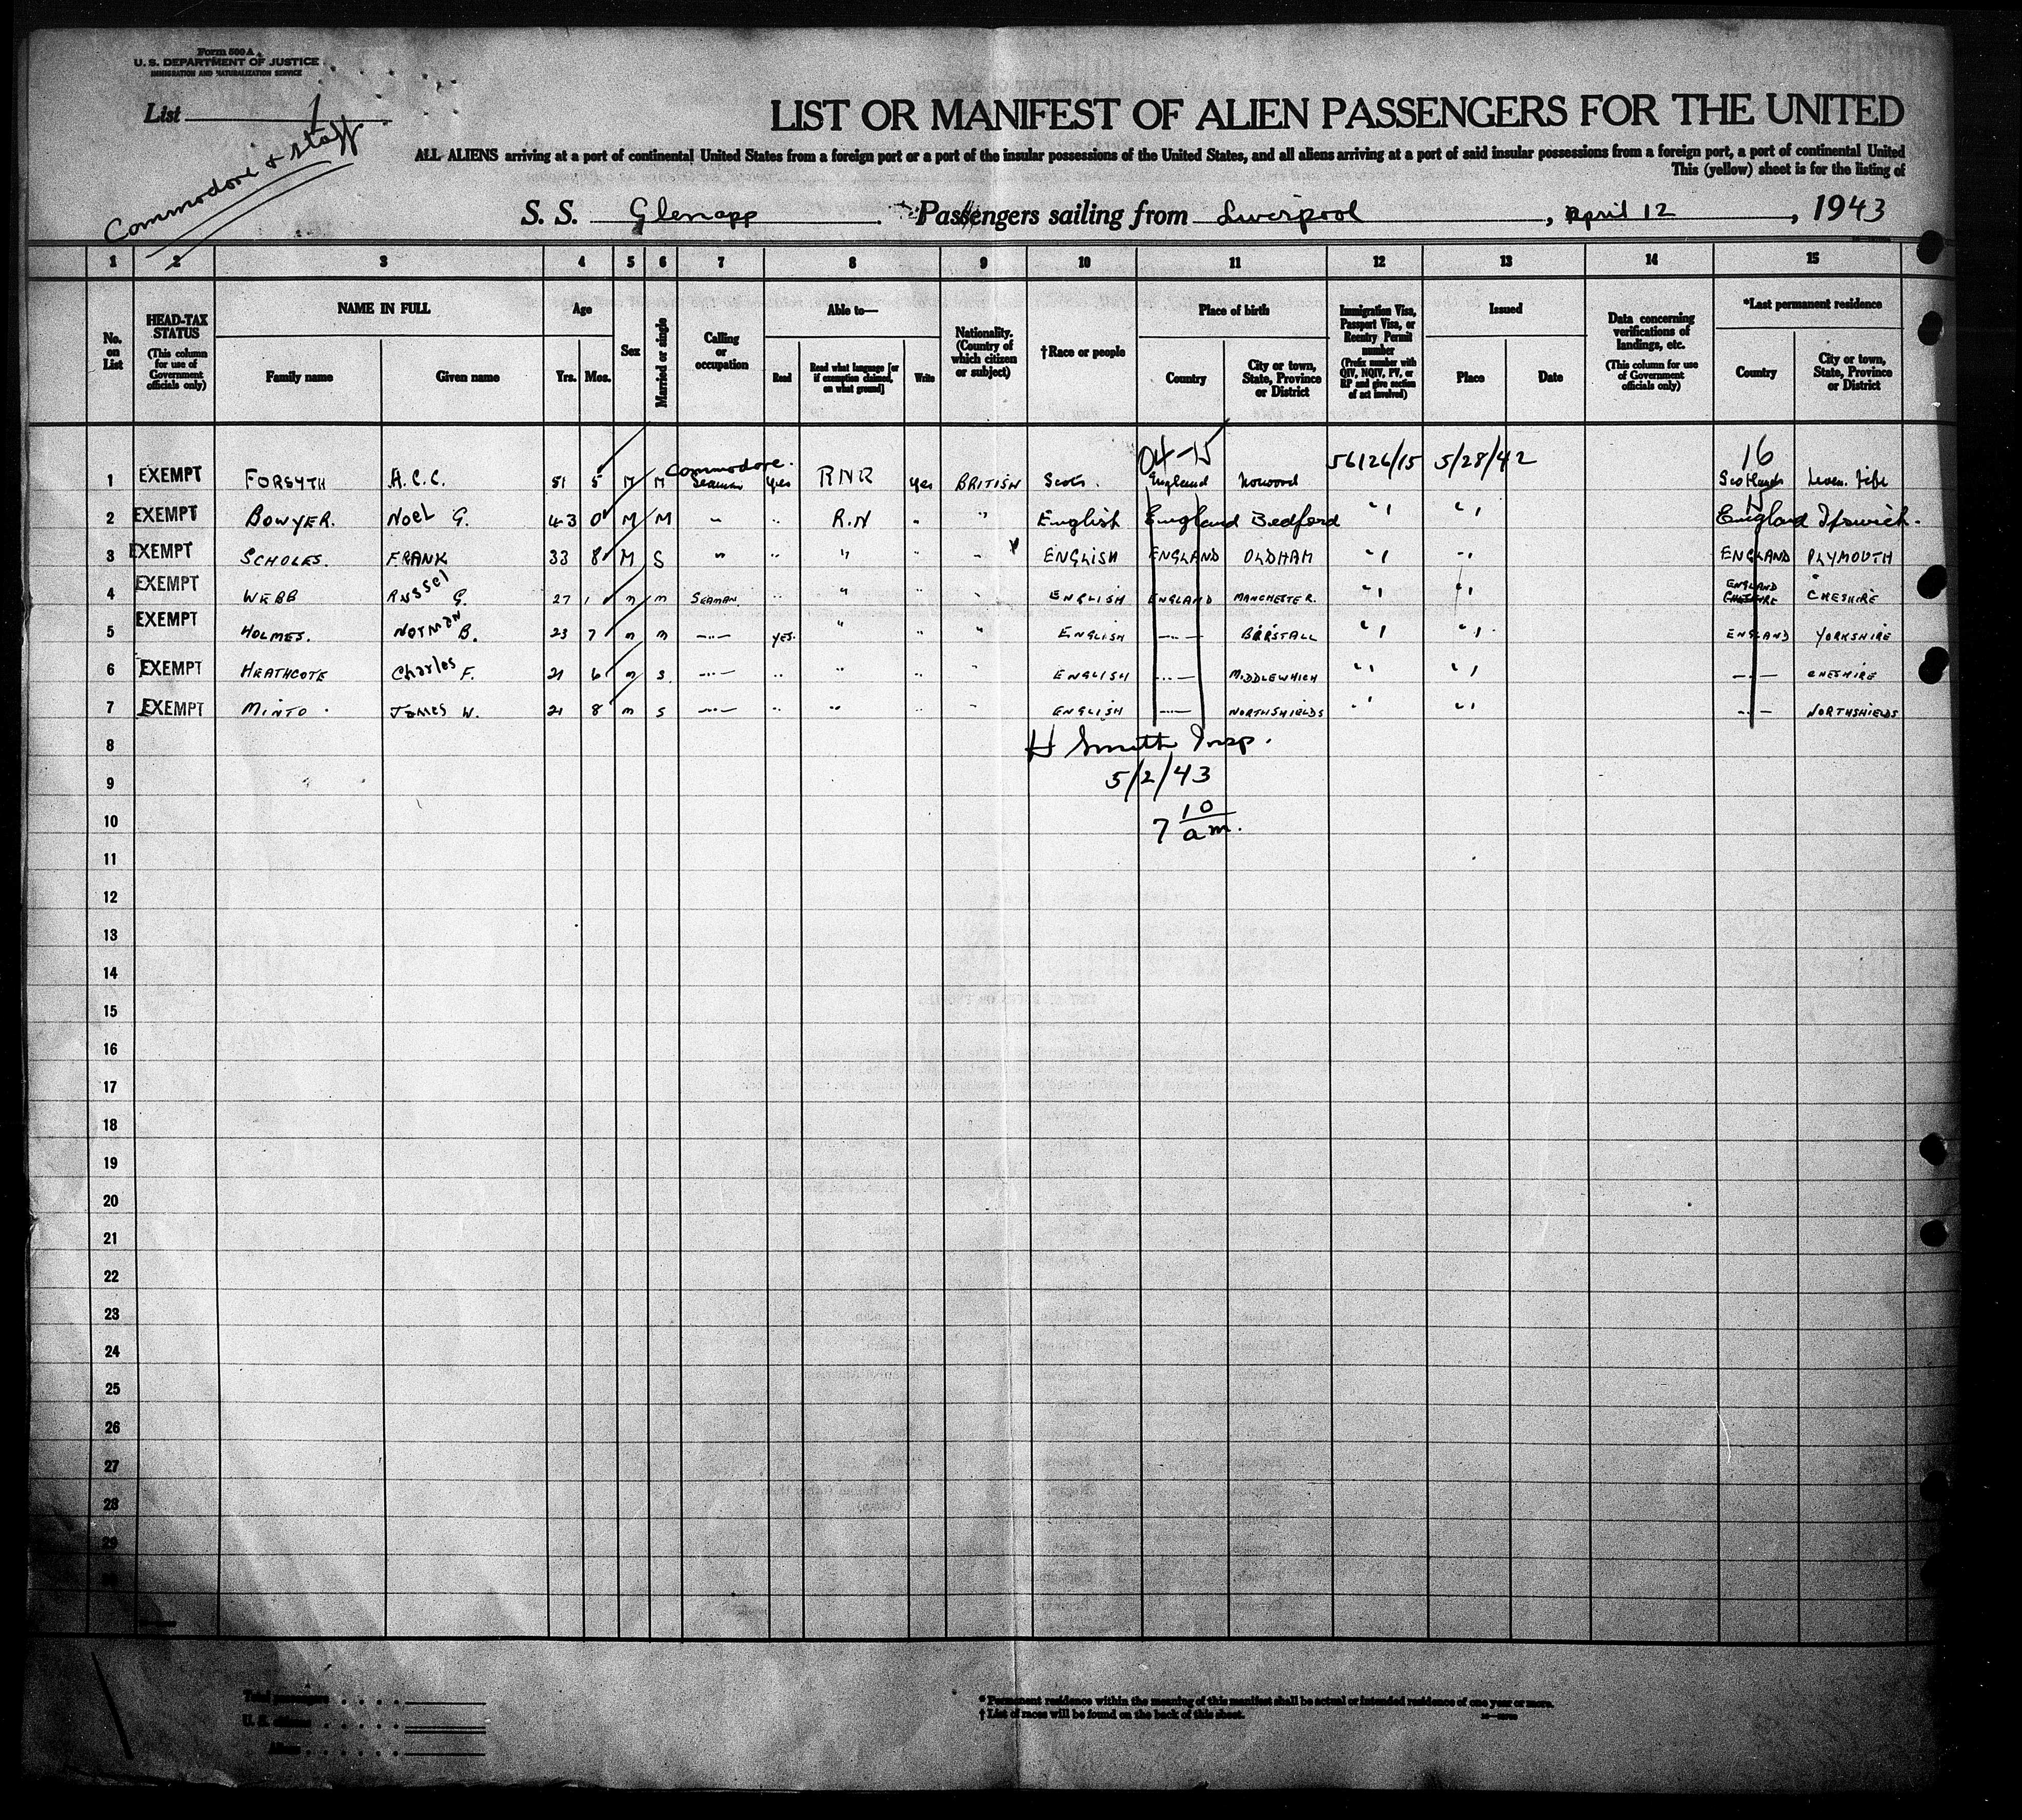 Form 500 A
U. S. DEPARTMENT OF JUSTICE
IMMIGRATION AND NATURALIZATION SERVICE
List 1
Commodore & Staff
LIST OR MANIFEST OF ALIEN PASSENGERS FOR THE UNITED
ALL ALIENS arriving at a port of continental United States from a foreign port or a port of the insular possessions of the United States, and all aliens arriving at a port of said insular possessions from a foreign port, a port of continental United
This (yellow) sheet is for the listing of
S. S. Glenapp Passengers sailing from Liverpool, April 12, 1943
1 2 3 4 5 6 7 8 9 10 11 12 13 14 15
No. on List
HEAD-TAX STATUS (This column for use of Government officials only)
NAME IN FULL Family name Given name
Age Yrs. Mos.
Sex
Married or single
Calling or occupation
Able to— Read Read what language [or if exemption claimed, on what ground] Write
Nationality. (Country of which citizen or subject)
†Race or people
Place of birth Country City or town, State, Province or District
Immigration Visa, Passport Visa, or Reentry Permit number (Prefix number with QIV, NQIV, PV, or RP and give section of act involved)
Issued Place Date
Data concerning verifications of landings, etc. (This column for use of Government officials only)
*Last permanent residence Country City or town, State, Province or District
04-15 16
Commodore.
1 EXEMPT FORSYTH A.C.C. 51 5 M M Seaman yes RNR yes BRITISH Scots. England Norwood 56126/15 5/28/42 Scotland Leven. Fife
15
2 EXEMPT BOWYER. Noel G. 43 0 M M " " R.N " " English England Bedford " " England Ipswich.
3 EXEMPT SCHOLES. FRANK 33 8 M S " " " " " ENGLISH ENGLAND OLDHAM " " ENGLAND PLYMOUTH
4 EXEMPT WEBB Russel G. 27 1 M M SEAMAN. " " " " ENGLISH ENGLAND MANCHESTER. " " ENGLAND CHESHIRE CHESHIRE
5 EXEMPT HOLMES. Norman B. 23 7 M M —"— YES. " " " ENGLISH —"— BIRSTALL " " ENGLAND YORKSHIRE
6 EXEMPT HEATHCOTE Charles F. 21 6 M S. —"— " " " " ENGLISH —"— MIDDLEWHICH " " —"— CHESHIRE
7 EXEMPT MINTO. James W. 21 8 M S —"— " " " " ENGLISH —"— NORTHSHIELDS " " —"— NORTHSHIELDS
8 H Smith Insp.
9 5/2/43
10 7 10 am.
11
12
13
14
15
16
17
18
19
20
21
22
23
24
25
26
27
28
29
Total passengers
U. S. citizens
Aliens
* Permanent residence within the meaning of this manifest shall be actual or intended residence of one year or more.
† List of races will be found on the back of this sheet.